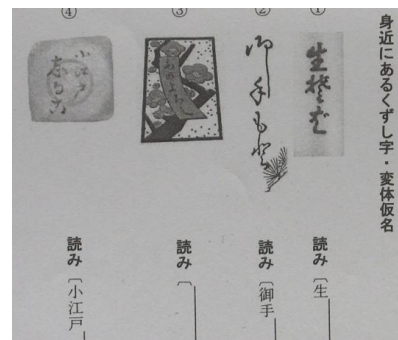 身近にあるくずし字・変体仮名
①
生楚者゛
読み〔生
②
御手も登
読み〔御手
③
あのよろし
読み〔
④
小江戸
志るこ
読み〔小江戸